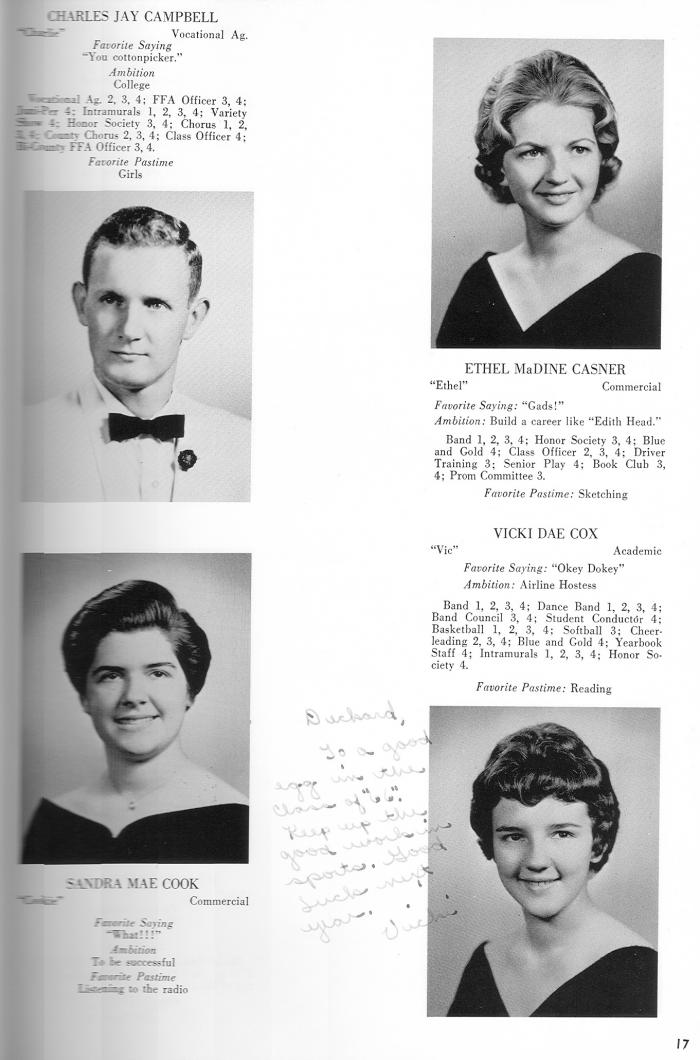 CHARLES JAY CAMPBELL
"Charlie" Vocational Ag.
Favorite Saying
"You cottonpicker."
Ambition
College
Vocational Ag. 2, 3, 4; FFA Officer 3, 4;
4; Intramurals 1, 2, 3, 4; Variety
Show 4; Honor Society 3, 4; Chorus 1, 2,
3, 4; County Chorus 2, 3, 4; Class Officer 4;
Bi-County FFA Officer 3, 4.
Favorite Pastime
Girls
ETHEL MaDINE CASNER
"Ethel" Commercial
Favorite Saying: "Gads!"
Ambition: Build a career like "Edith Head."
Band 1, 2, 3, 4; Honor Society 3, 4; Blue
and Gold 4; Class Officer 2, 3, 4; Driver
Training 3; Senior Play 4; Book Club 3,
4; Prom Committee 3.
Favorite Pastime: Sketching
SANDRA MAE COOK
"Cookie" Commercial
Favorite Saying
"What!!!"
Ambition
To be successful
Favorite Pastime
Listening to the radio
VICKI DAE COX
"Vic" Academic
Favorite Saying: "Okey Dokey"
Ambition: Airline Hostess
Band 1, 2, 3, 4; Dance Band 1, 2, 3, 4;
Band Council 3, 4; Student Conductór 4;
Basketball 1, 2, 3, 4; Softball 3; Cheer-
leading 2, 3, 4; Blue and Gold 4; Yearbook
Staff 4; Intramurals 1, 2, 3, 4; Honor So-
ciety 4.
Favorite Pastime: Reading
Deckard,
To a good
egg in the
class of "66".
Keep up the
good work in
sports. Good
luck next
year.
Vicki
17